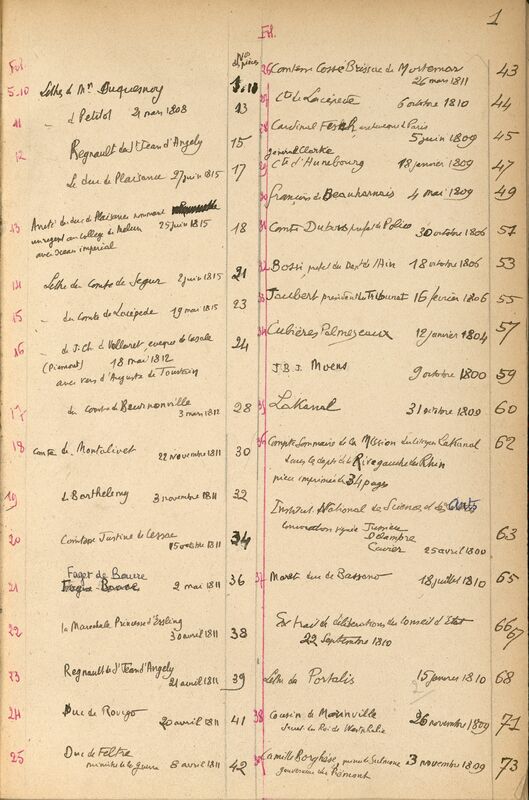 1
Fol.
Nos
de pièces
5.10 Lettre de Mr Duquesnoy 5.10
11 d° Petitot 21 mars 1808 13
12 Regnault de St Jean d'Angely 15
Le duc de Plaisance 27 juin 1815 17
13 Arreté du duc de Plaisance nommant
un regent au college de Melun 25 juin 1815 18
avec sceau imperial
14 Lettre du Comte de Segur 2 juin 1815 21
15 du Comte de Lacépède 19 mai 1815 23
16 de J. Ch. d Villaret, eveque de Casale 24
(Piemont) 18 mai 1812
avec vers d'Auguste de
17 du comte de Beurnonville 28
3 mars 1812
18 Comte de Montalivet 30
22 novembre 1811
19 de Barthelemy 3 novembre 1811 32
20 Comtesse Justine de Cessac 34
15 octobre 1811
21 Faget de Baure 2 mai 1811 36
22 la Marechale Princesse d'Essling 38
30 avril 1811
23 Regnault de St Jean d'Angely 39
21 avril 1811
24 Duc de Rovigo 20 avril 1811 41
25 Duc de Feltre
ministre de la guerre 8 avril 1811 42
Fol.
26 Comtesse Cossé Brissac de Mortemar 43
26 mars 1811
27 Cte de Lacépède 6 octobre 1810 44
28 Cardinal Fesch, archeveque de Paris 45
5 juin 1809
general Clarke
29 Cte d'Hunebourg 18 janvier 1809 47
30 François de Beauharnais 4 mai 1809 49
31 Comte Dubois prefet de Police 30 octobre 1806 51
32 Bossi prefet du Dept de l'Ain 18 octobre 1806 53
33 Jaubert president du Tribunat 16 fevrier 1806 55
34 Cubières Palmezeaux 12 janvier 1804 57
J.B.J. Mvens 9 octobre 1800 59
35 Lakanal 31 octobre 1800 60
36 Compte Sommaire de la Mission du citoyen Lakanal 62
dans les depts de la Rive gauche du Rhin
piece imprimée de 34 pages
Institut National des Sciences et des Arts
Convocation signée Jussieu 63
Delambre
Cuvier 25 avril 1800
37 Maret duc de Bassano 18 juillet 1810 65
Extrait de déliberations du Conseil d'Etat 66
22 Septembre 1810 67
Lettre de Portalis 15 janvier 1810 68
2
38 Cousin de Marinville 26 novembre 1809 71
Secret. du Roi de Westphalie
39 Camille Borghèse, prince de Sulmone 3 novembre 1809 73
gouverneur du Piémont